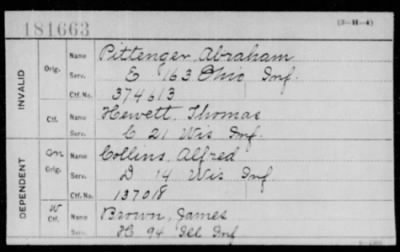 181663
(3-H-4)
INVALID
Orig. Name Pittenger, Abraham
Serv. E 163 Ohio Inf.
Ctf. No. 374613
Ctf. Name Hewett, Thomas
Serv. C 21 Wis Inf.
DEPENDENT
Orig. Name Collins, Alfred
Serv. D 14 Wis Inf.
Ctf. No. 137018
W Ctf. Name Brown, James
Serv. H 94 Ill Inf